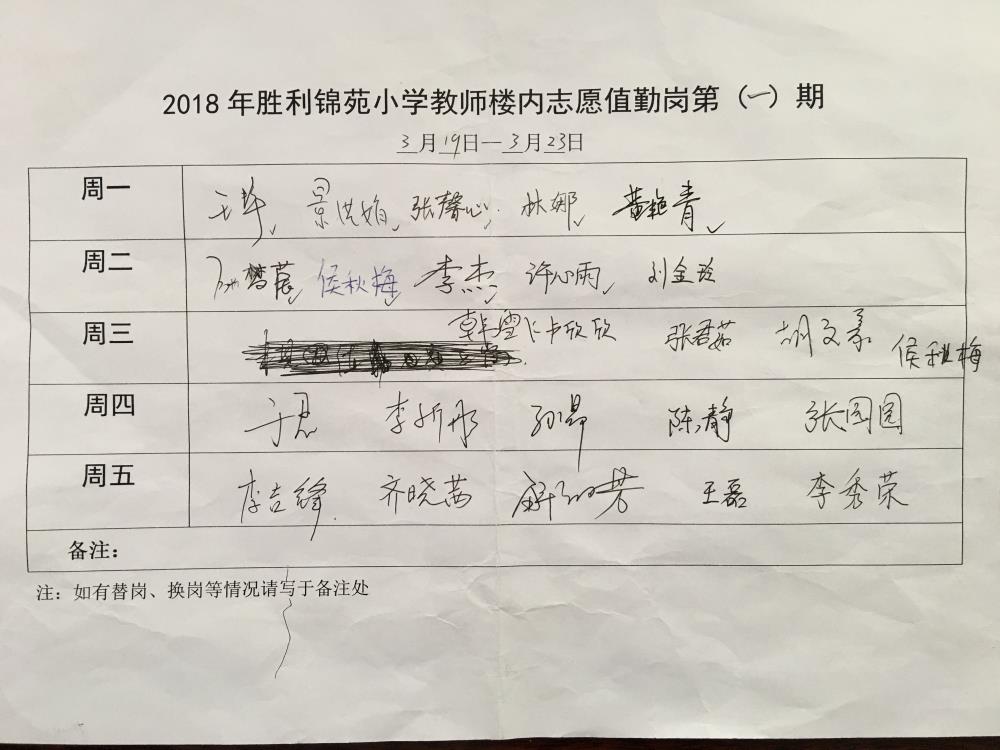 2018年胜利锦苑小学教师楼内志愿值勤岗第（一）期
3月19日—3月23日
周一 景洪娟 张馨心 林娜 黄艳青
周二 侯秋梅 李杰 许心雨 刘金玲
周三 韩雪 卞欣欣 张君茹 胡文 侯秋梅
周四 于忍 李昕彤 孙昂 陈静 张园园
周五 李吉峰 齐晓茜 王磊 李秀荣
备注：
注：如有替岗、换岗等情况请写于备注处